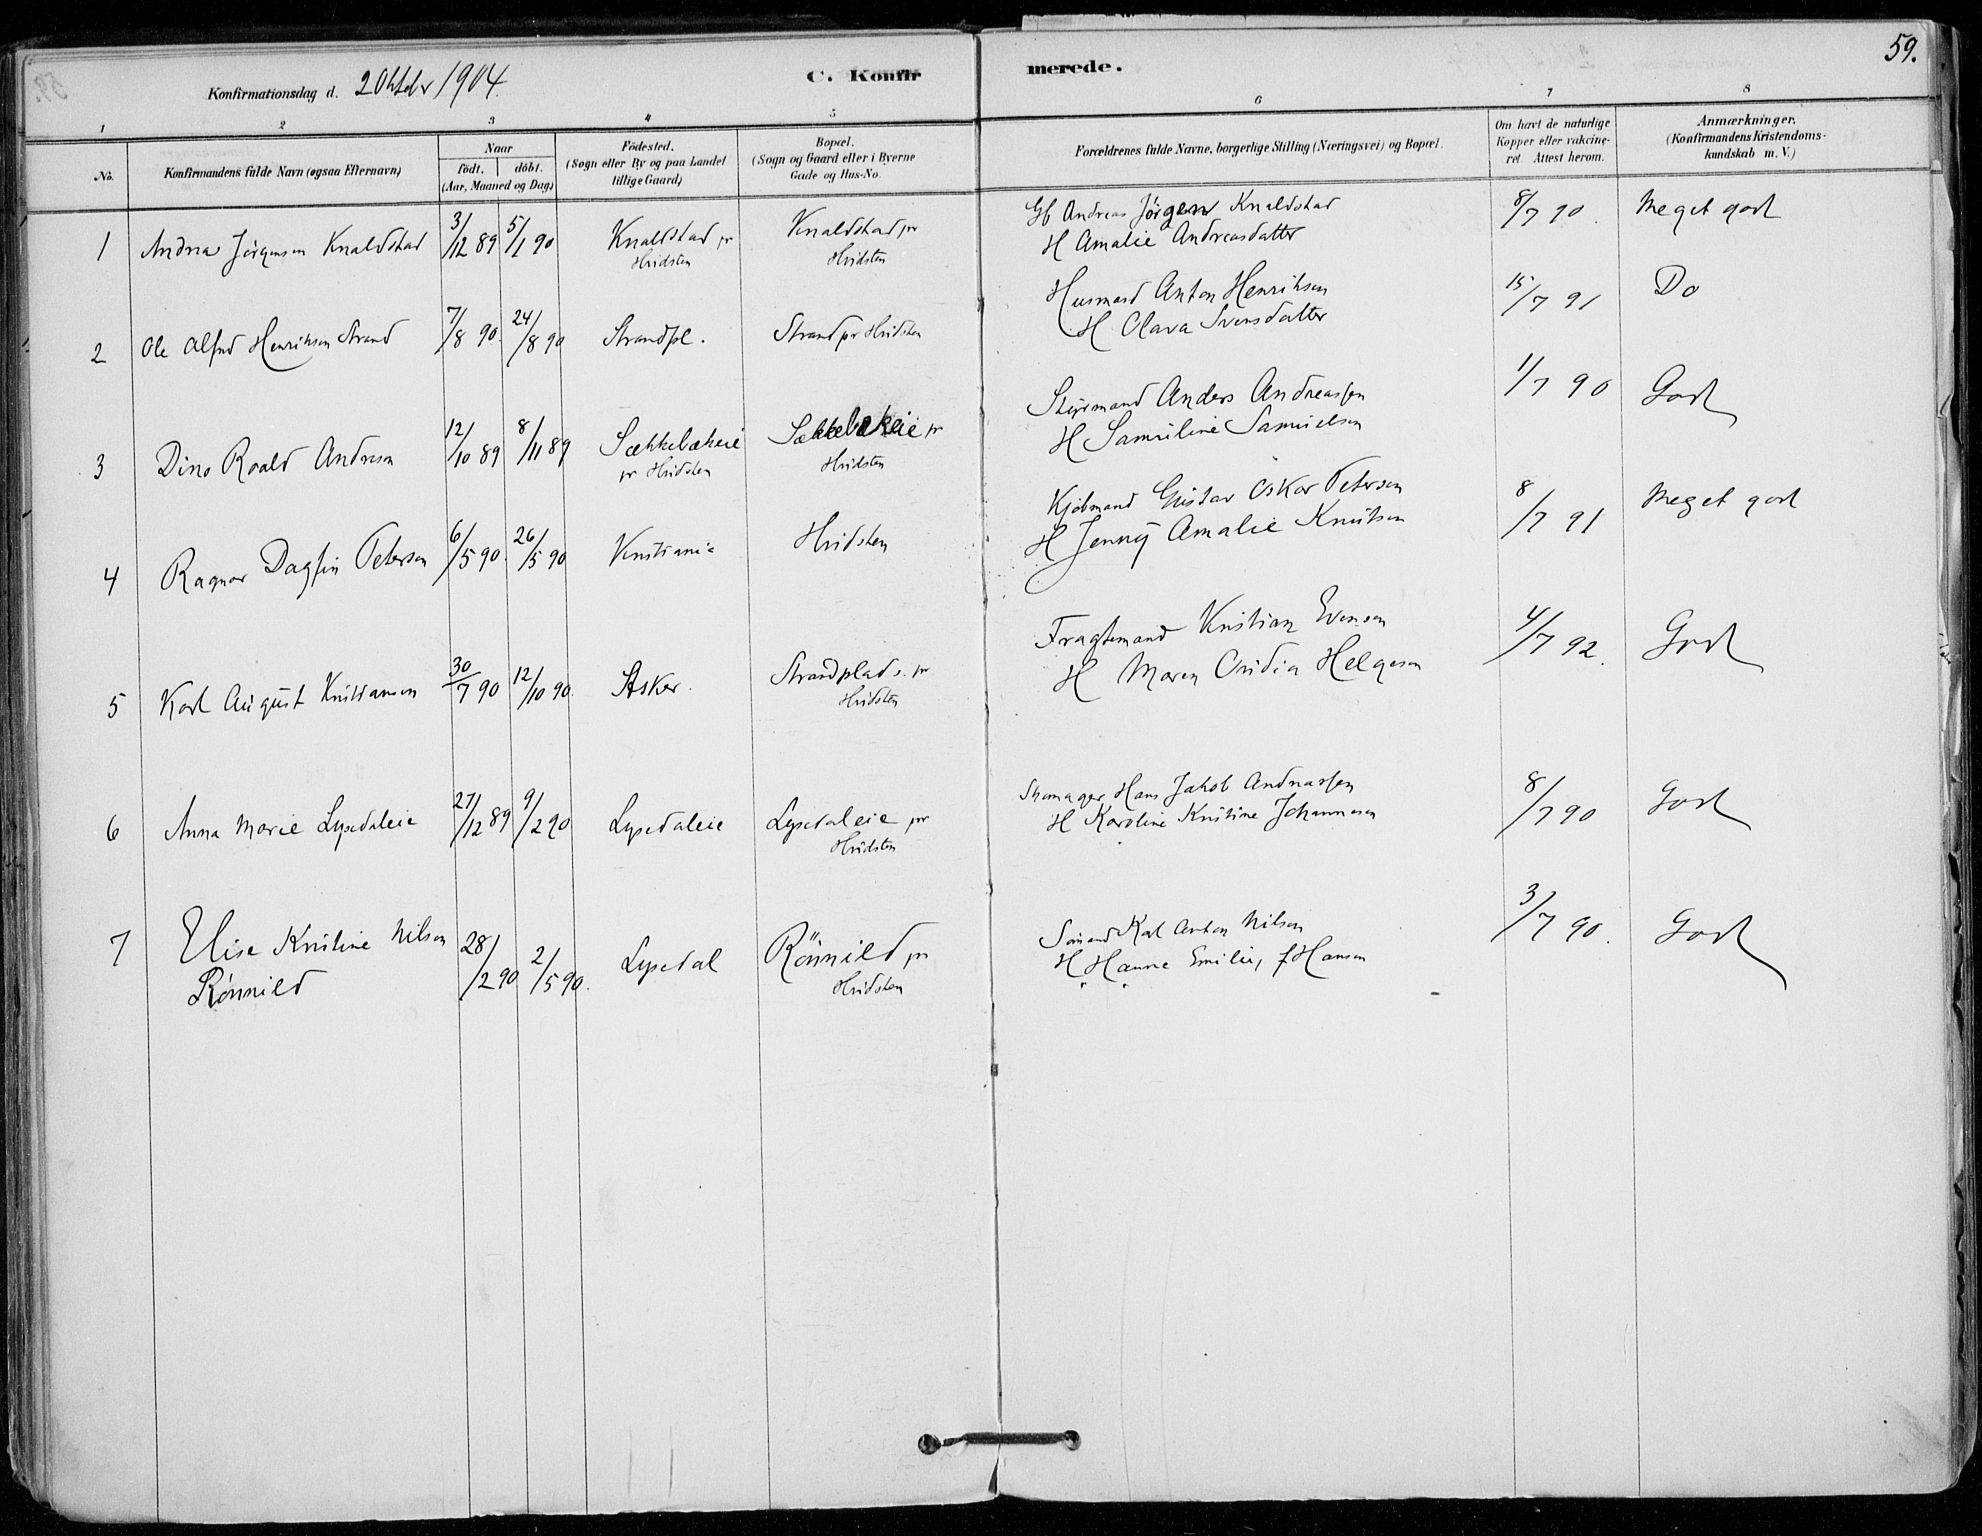 59.
Konfirmationsdag d. 2 Oktobr 1904.
C. Konfirmerede.
1 2 3 4 5 6 7 8
No.
Konfirmandens fulde Navn (ogsaa Efternavn)
Naar
født. døbt.
(Aar, Maaned og Dag)
Fødested.
(Sogn eller By og paa Landet
tillige Gaard)
Bopæl.
(Sogn og Gaard eller i Byerne
Gade og Hus-No.
Forældrenes fulde Navne, borgerlige Stilling (Næringsvei) og Bopæl.
Om havt de naturlige
Kopper eller vakcine-
ret. Attest herom.
Anmærkninger.
(Konfirmandens Kristendoms-
kundskab m. V.)
1 Andrea Jörgensen Knaldstad 3/12 89 5/1 90 Knaldstad pr Knaldstad pr Gb Andreas Jörgen Knaldstad 8/7 90. Meget godt
Hvidsten Hvidsten H Amalie Andreasdatter
2 Ole Alfred Henriksen Strand 7/8 90. 24/8 90 Strandpl. Strand pr Hvidsten Husmand Anton Henriksen 15/7 91 Do
H. Olava Svensdatter
3 Dino Roald Andresen 12/10 89 8/11 89 Sækkebækeie Sækkebækeie pr Styrmand Anders Andreassen 1/7 90 Godt
pr Hvidsten Hvidsten H Samuline Samuelsen
4 Ragnar Dagfin Petersen 6/5 90. 26/5 90 Kristiania Hvidsten Kjöbmand Gustav Oskar Petersen 8/7 91 Meget godt
H Jenny Amalie Knutsen
5 Karl August Kristiansen 30/7 90 12/10 90. Asker. Strandplads. pr Fragtemand Kristian Evensen 4/7 92. Godt
Hvidsten H Maren Ovidia Helgesen
6 Anna Marie Lysedaleie 27/12 89 9/2 90 Lysedaleie Lysedaleie pr Skomager Hans Jakob Andreassen 8/7 90 Godt
Hvidsten H Karoline Kristine Johannesen
7 Elise Kristine Nilsen 28/2 90 2/5 90. Lysedal Rönnild pr Sömand Karl Anton Nilsen 3/7 90. Godt
Rönnild Hvidsten H Hanne Emilie, f Hansen